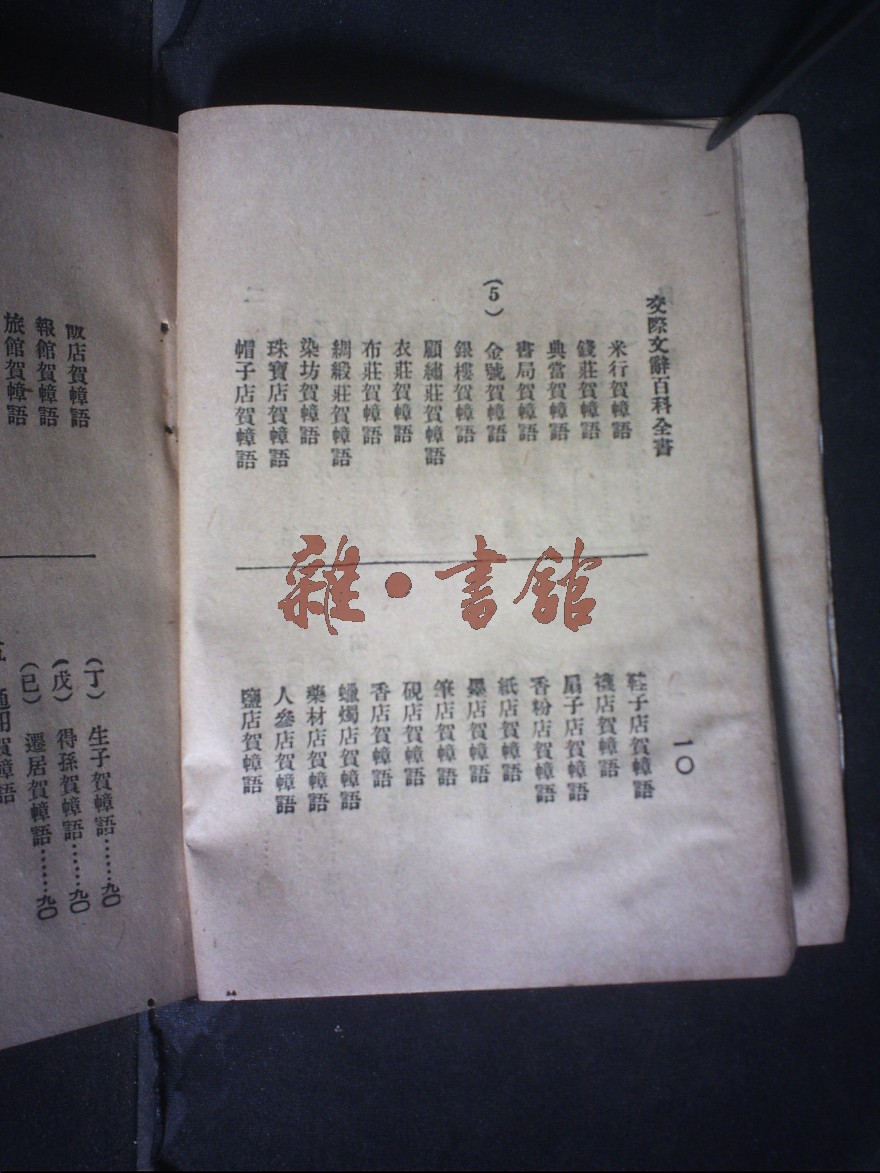 交際文辭百科全書
一〇
米行賀幛語
錢莊賀幛語
典當賀幛語
書局賀幛語
(5)
金號賀幛語
銀樓賀幛語
顧繡莊賀幛語
衣莊賀幛語
布莊賀幛語
綢緞莊賀幛語
染坊賀幛語
珠寶店賀幛語
帽子店賀幛語
鞋子店賀幛語
襪店賀幛語
扇子店賀幛語
香粉店賀幛語
紙店賀幛語
墨店賀幛語
筆店賀幛語
硯店賀幛語
香店賀幛語
蠟燭店賀幛語
藥材店賀幛語
人參店賀幛語
鹽店賀幛語
雜·書館
飯店賀幛語
報館賀幛語
旅館賀幛語
(丁) 生子賀幛語……九〇
(戊) 得孫賀幛語……九〇
(已) 遷居賀幛語……九〇
通用賀幛語